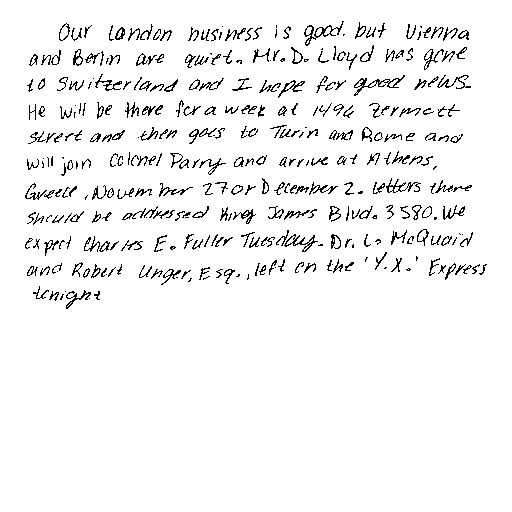 Our London business is good. but Vienna
and Berlin are quiet. Mr. D. Lloyd has gone
to Switzerland and I hope for good news.
He will be there for a week at 1496 Zermott
street and then goes to Turin and Rome and
will join Colonel Parry and arrive at Athens,
Greece, November 27 or December 2. Letters there
should be addressed King James Blvd. 3580. We
expect Charles E. Fuller Tuesday. Dr. L. McQuaid
and Robert Unger, Esq., left on the 'Y.X.' Express
tonight